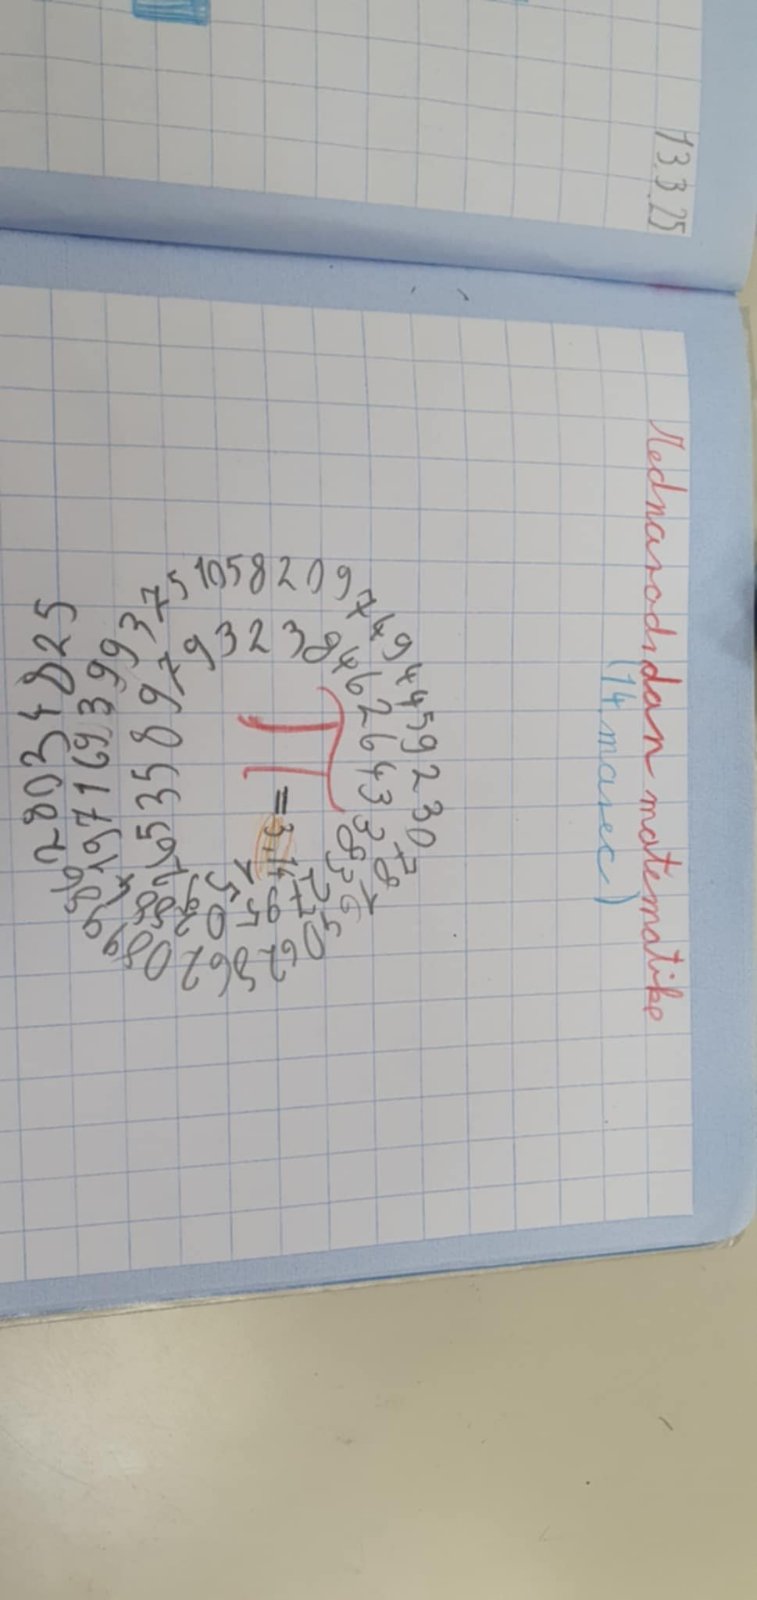 13.3.25
Mednarodni dan matematike
(14. marec)
π=3,14
1592653589793238462643383279502884197169399375105820974944592307816406286208998628034825